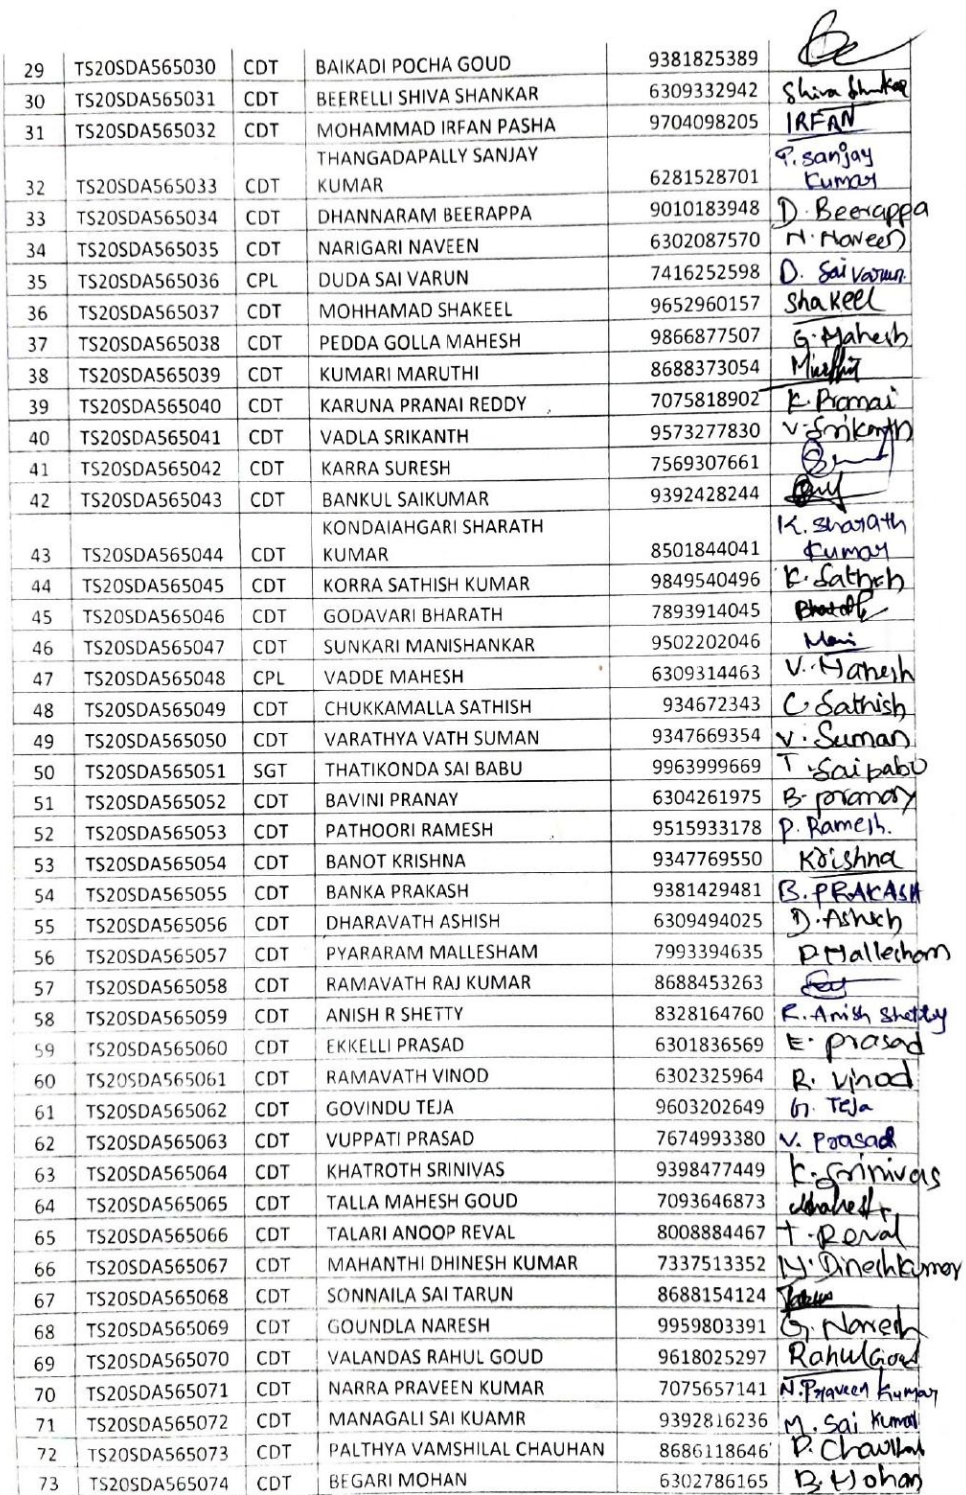 29 TS20SDA565030 CDT BAIKADI POCHA GOUD 9381825389
30 TS20SDA565031 CDT BEERELLI SHIVA SHANKAR 6309332942 Shiva Shankar
31 TS20SDA565032 CDT MOHAMMAD IRFAN PASHA 9704098205 IRFAN
THANGADAPALLY SANJAY T. sanjay
32 TS20SDA565033 CDT KUMAR 6281528701 Kumar
33 TS20SDA565034 CDT DHANNARAM BEERAPPA 9010183948 D. Beerappa
34 TS20SDA565035 CDT NARIGARI NAVEEN 6302087570 N. Naveen
35 TS20SDA565036 CPL DUDA SAI VARUN 7416252598 D. Sai Varun
36 TS20SDA565037 CDT MOHHAMAD SHAKEEL 9652960157 Shakeel
37 TS20SDA565038 CDT PEDDA GOLLA MAHESH 9866877507 G. Mahesh
38 TS20SDA565039 CDT KUMARI MARUTHI 8688373054
39 TS20SDA565040 CDT KARUNA PRANAI REDDY 7075818902 K. Pranai
40 TS20SDA565041 CDT VADLA SRIKANTH 9573277830 V. Srikanth
41 TS20SDA565042 CDT KARRA SURESH 7569307661
42 TS20SDA565043 CDT BANKUL SAIKUMAR 9392428244
KONDAIAHGARI SHARATH K. Sharath
43 TS20SDA565044 CDT KUMAR 8501844041 Kumar
44 TS20SDA565045 CDT KORRA SATHISH KUMAR 9849540496 K. Sathish
45 TS20SDA565046 CDT GODAVARI BHARATH 7893914045
46 TS20SDA565047 CDT SUNKARI MANISHANKAR 9502202046 Mani
47 TS20SDA565048 CPL VADDE MAHESH 6309314463 V. Mahesh
48 TS20SDA565049 CDT CHUKKAMALLA SATHISH 934672343 C. Sathish
49 TS20SDA565050 CDT VARATHYA VATH SUMAN 9347669354 V. Suman
50 TS20SDA565051 SGT THATIKONDA SAI BABU 9963999669 T. Saibabu
51 TS20SDA565052 CDT BAVINI PRANAY 6304261975 B. pranay
52 TS20SDA565053 CDT PATHOORI RAMESH 9515933178 P. Ramesh.
53 TS20SDA565054 CDT BANOT KRISHNA 9347769550 Krishna
54 TS20SDA565055 CDT BANKA PRAKASH 9381429481 B. PRAKASH
55 TS20SDA565056 CDT DHARAVATH ASHISH 6309494025 D. Ashish
56 TS20SDA565057 CDT PYARARAM MALLESHAM 7993394635 P. Mallesham
57 TS20SDA565058 CDT RAMAVATH RAJ KUMAR 8688453263
58 TS20SDA565059 CDT ANISH R SHETTY 8328164760 R. Anish Shetty
59 TS20SDA565060 CDT EKKELLI PRASAD 6301836569 E. prasad
60 TS20SDA565061 CDT RAMAVATH VINOD 6302325964 R. Vinod
61 TS20SDA565062 CDT GOVINDU TEJA 9603202649 G. Teja
62 TS20SDA565063 CDT VUPPATI PRASAD 7674993380 V. Prasad
63 TS20SDA565064 CDT KHATROTH SRINIVAS 9398477449 K. Srinivas
64 TS20SDA565065 CDT TALLA MAHESH GOUD 7093646873
65 TS20SDA565066 CDT TALARI ANOOP REVAL 8008884467 T. Reval
66 TS20SDA565067 CDT MAHANTHI DHINESH KUMAR 7337513352 M. Dineshkumar
67 TS20SDA565068 CDT SONNAILA SAI TARUN 8688154124
68 TS20SDA565069 CDT GOUNDLA NARESH 9959803391 G. Naresh
69 TS20SDA565070 CDT VALANDAS RAHUL GOUD 9618025297 Rahul Goud
70 TS20SDA565071 CDT NARRA PRAVEEN KUMAR 7075657141 N. Praveen Kumar
71 TS20SDA565072 CDT MANAGALI SAI KUAMR 9392816236 M. Sai Kumar
72 TS20SDA565073 CDT PALTHYA VAMSHILAL CHAUHAN 8686118646 P. Chauhan
73 TS20SDA565074 CDT BEGARI MOHAN 6302786165 B. Mohan